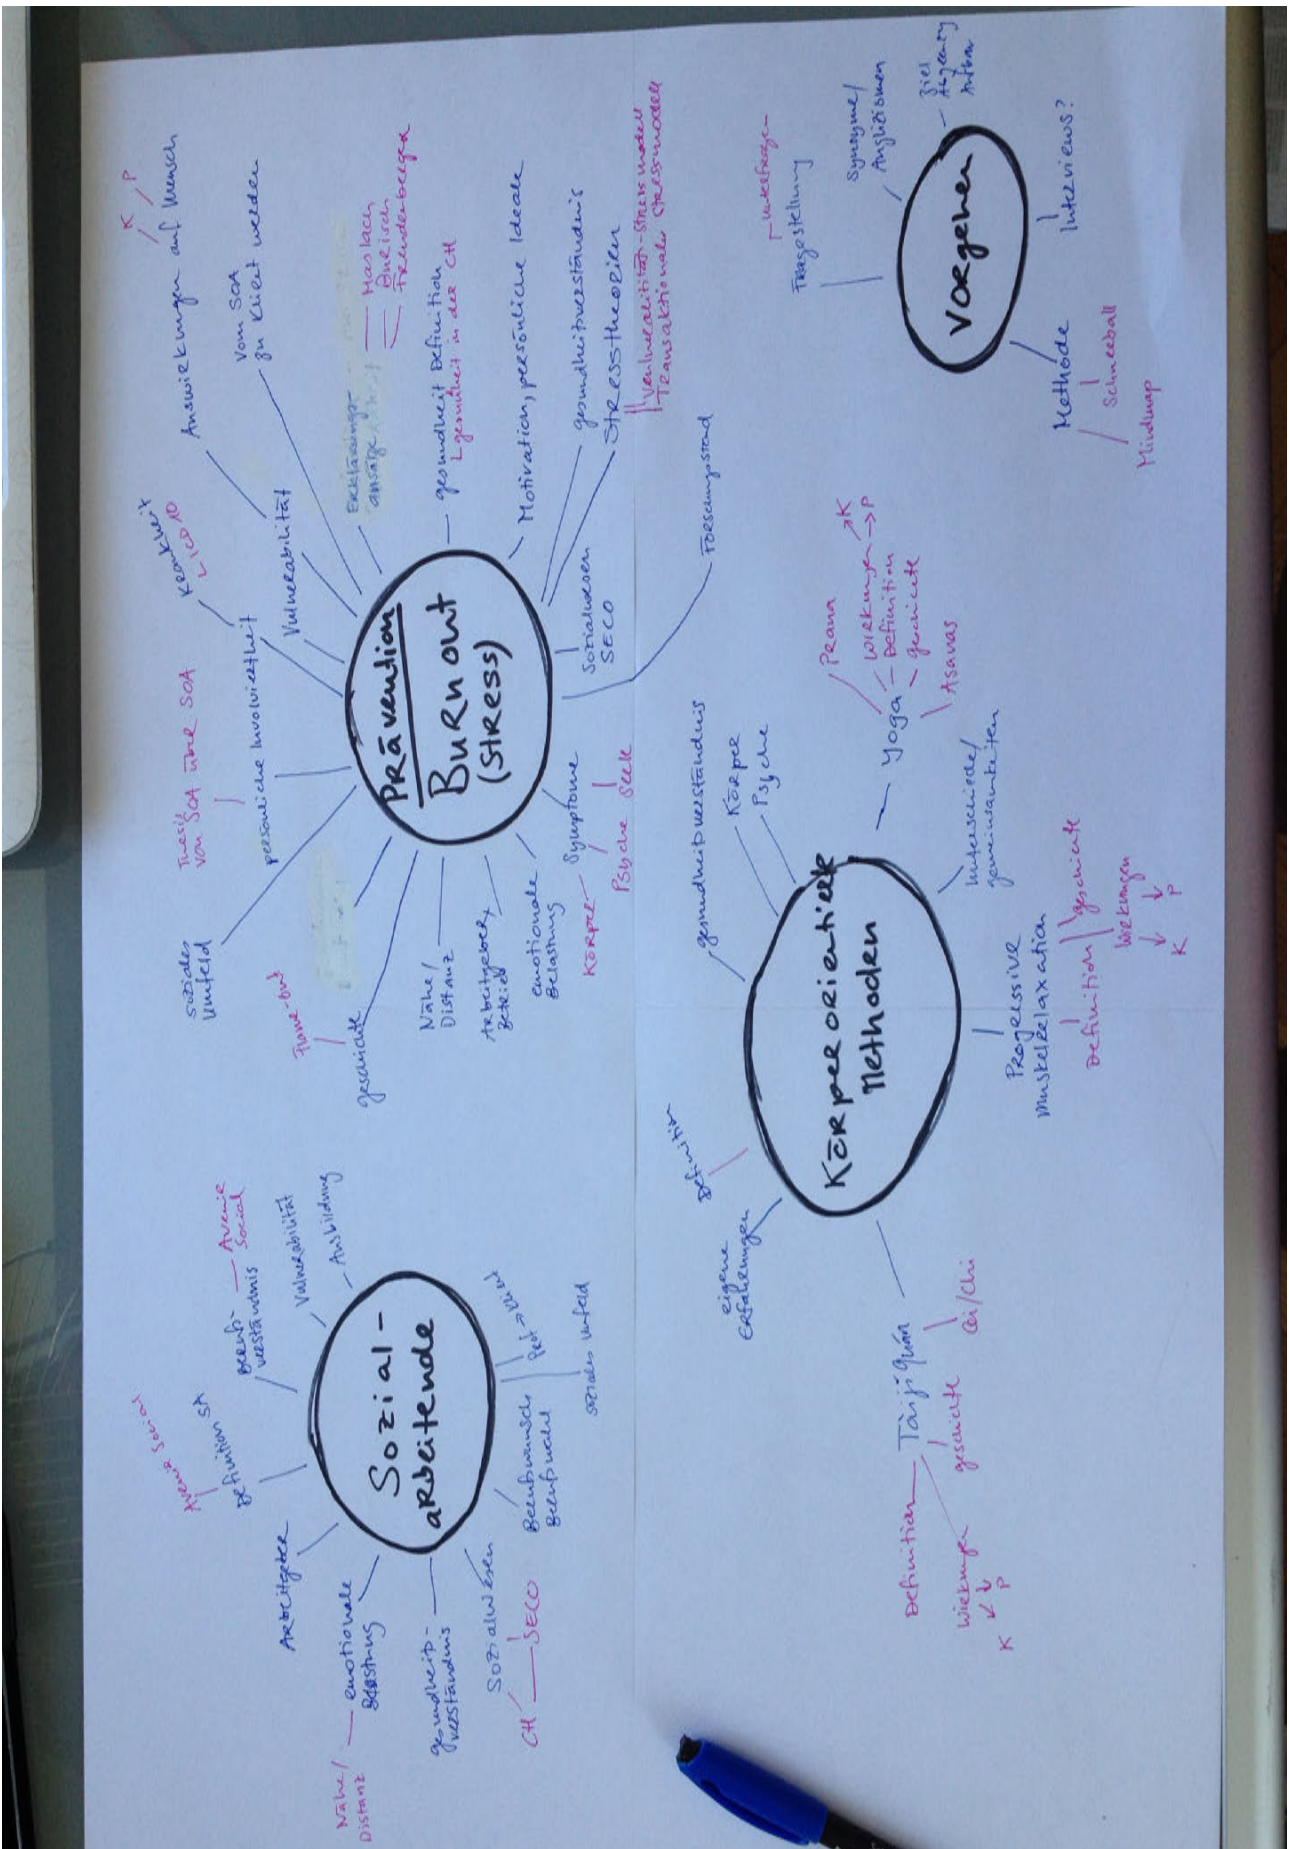 Sozial-
arbeitende
Avenir Social
Definition SA
Berufs-
verständnis
Avenir
Social
Vulnerabilität
Ausbildung
Arbeitgeber
Nähe/
Distanz
emotionale
Belastung
gesundheits-
verständnis
Sozialwesen
CH
SECO
Berufswunsch
Berufswahl
soziales Umfeld
Prävention
Burnout
(Stress)
soziales
Umfeld
Thesis
von SOA über SOA
persönliche Involviertheit
Krankheit
ICD 10
Vulnerabilität
Auswirkungen auf Mensch
K
P
Vom SOA
zu Klient werden
Erklärungs-
ansätze
Maslach
Burisch
Freudenberger
gesundheit Definition
gesundheit in der CH
Motivation, persönliche Ideale
gesundheitsverständnis
Stresstheorien
Vulnerabilität-Stressmodell
Transaktionales Stressmodell
Forschungsstand
Sozialwesen
SECO
Symptome
Körper
Psyche
Seele
emotionale
Belastung
Arbeitgeber
Betrieb
Nähe/
Distanz
geschichte
Flame-out
Körperorientierte
Methoden
Definition
eigene
Erfahrungen
gesundheitsverständnis
Körper
Psyche
Yoga
Prana
Wirkungen
K
P
Definition
geschichte
Asanas
Unterschiede/
gemeinsamkeiten
Progressive
Muskelrelaxation
Definition
geschichte
Wirkungen
K
P
Tàijíquán
Definition
Wirkungen
K
P
geschichte
Qi/Chi
Vorgehen
Fragestellung
Unterfragen
Synonyme/
Anglizismen
Ziel
Interviews?
Methode
Schneeball
Mindmap